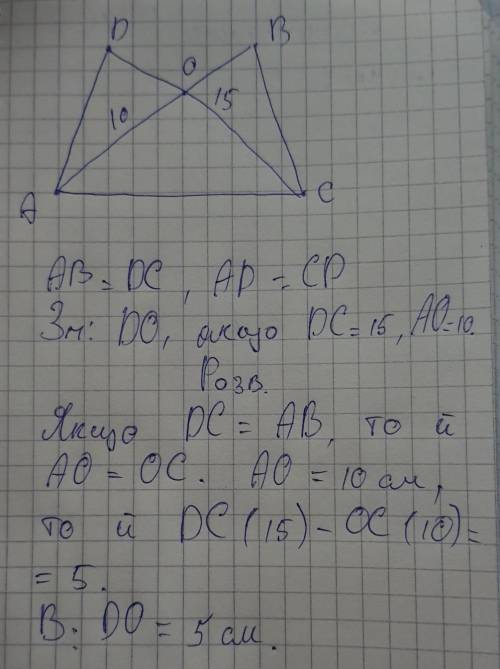 D
B
O
10
15
A
C
AB = DC, AD = CD
Зн: DO, якщо DC = 15, AO = 10.
Розв.
Якщо DC = AB, то й
AO = OC. AO = 10 см,
то й DC (15) - OC (10) =
= 5.
В: DO = 5 см.